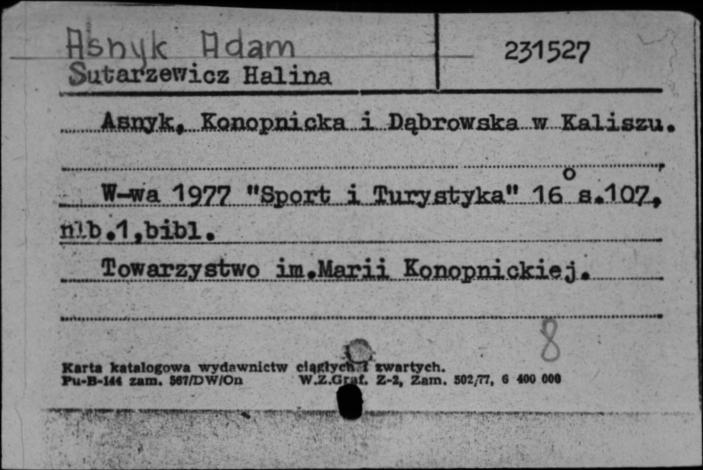 Asnyk Adam
231527
Sutarzewicz Halina
Asnyk, Konopnicka i Dąbrowska w Kaliszu.
W-wa 1977 "Sport i Turystyka" 16° s.107,
nlb.1,bibl.
Towarzystwo im.Marii Konopnickiej.
8
Karta katalogowa wydawnictw ciągłych i zwartych.
Pu-B-144 zam. 567/DW/On W.Z.Graf. Z-2, Zam. 502/77, 6 400 000